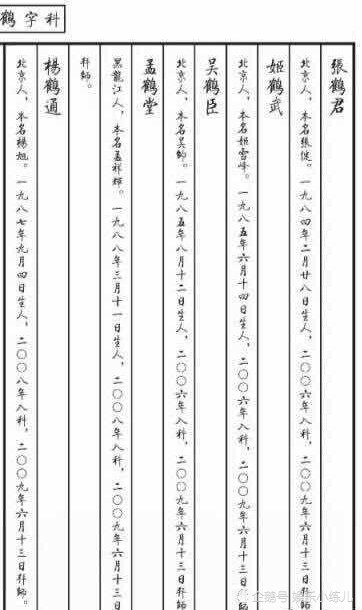 鶴字科
張鶴君
北京人，本名張健。一九八四年二月廿八日生人，二〇〇六年入科，二〇〇九年六月十三日拜師
姬鶴武
北京人，本名姬雪峰。一九八五年六月十四日生人，二〇〇六年入科，二〇〇九年六月十三日拜師
吳鶴臣
北京人，本名吳帥。一九八五年八月十二日生人，二〇〇六年入科，二〇〇九年六月十三日拜師
孟鶴堂
黑龍江人，本名孟祥輝。一九八八年三月十一日生人，二〇〇八年入科，二〇〇九年六月十三日
拜師。
楊鶴通
北京人，本名楊旭。一九八七年九月四日生人，二〇〇八年入科，二〇〇九年六月十三日拜師。
企鹅号 小练儿